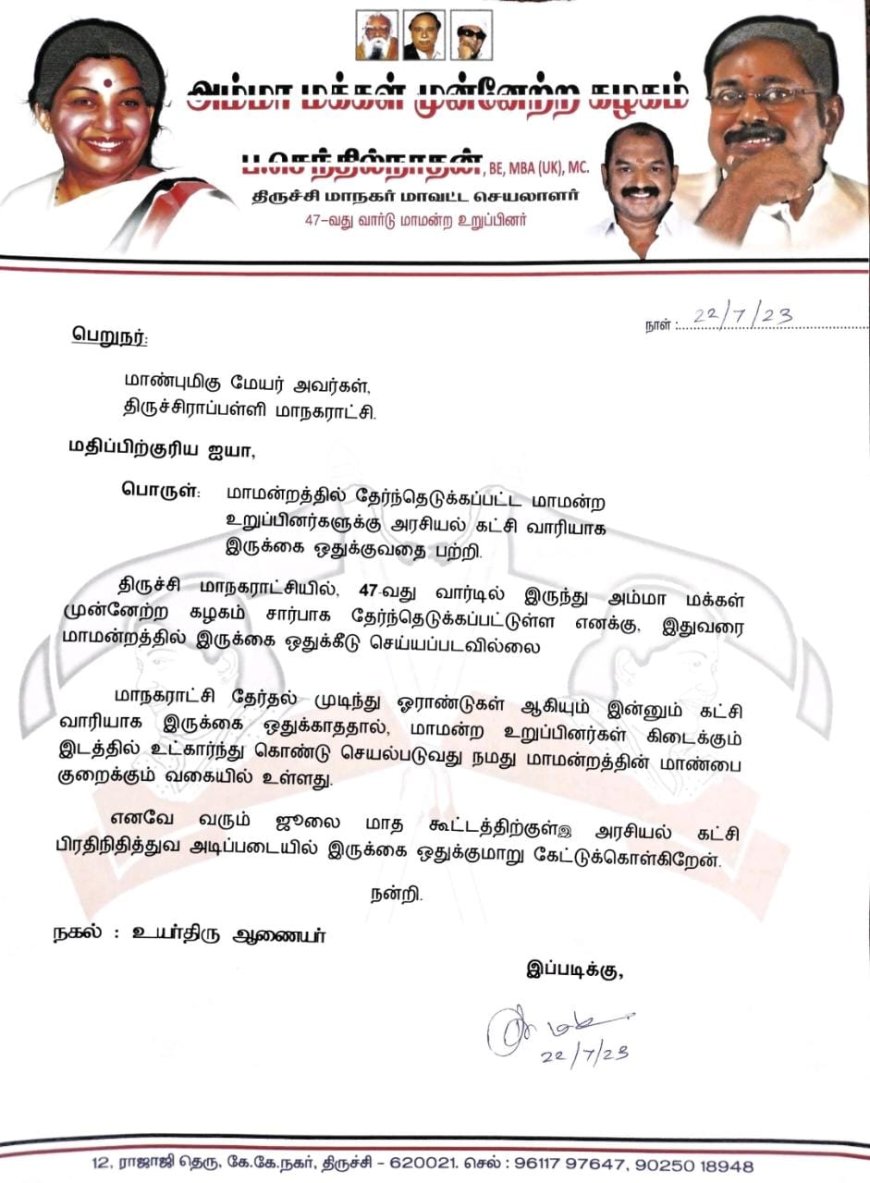 அம்மா மக்கள் முன்னேற்ற கழகம்
ப.செந்தில்நாதன், BE, MBA (UK), MC.
திருச்சி மாநகர் மாவட்ட செயலாளர்
47-வது வார்டு மாமன்ற உறுப்பினர்
நாள் : 22/7/23
பெறுநர்:
மாண்புமிகு மேயர் அவர்கள்,
திருச்சிராப்பள்ளி மாநகராட்சி.
மதிப்பிற்குரிய ஐயா,
பொருள்: மாமன்றத்தில் தேர்ந்தெடுக்கப்பட்ட மாமன்ற
உறுப்பினர்களுக்கு அரசியல் கட்சி வாரியாக
இருக்கை ஒதுக்குவதை பற்றி.
திருச்சி மாநகராட்சியில், 47-வது வார்டில் இருந்து அம்மா மக்கள்
முன்னேற்ற கழகம் சார்பாக தேர்ந்தெடுக்கப்பட்டுள்ள எனக்கு, இதுவரை
மாமன்றத்தில் இருக்கை ஒதுக்கீடு செய்யப்படவில்லை
மாநகராட்சி தேர்தல் முடிந்து ஓராண்டுகள் ஆகியும் இன்னும் கட்சி
வாரியாக இருக்கை ஒதுக்காததால், மாமன்ற உறுப்பினர்கள் கிடைக்கும்
இடத்தில் உட்கார்ந்து கொண்டு செயல்படுவது நமது மாமன்றத்தின் மாண்பை
குறைக்கும் வகையில் உள்ளது.
எனவே வரும் ஜூலை மாத கூட்டத்திற்குள்இ அரசியல் கட்சி
பிரதிநிதித்துவ அடிப்படையில் இருக்கை ஒதுக்குமாறு கேட்டுக்கொள்கிறேன்.
நன்றி.
நகல் : உயர்திரு ஆணையர்
இப்படிக்கு,
22/7/23
12, ராஜாஜி தெரு, கே.கே.நகர், திருச்சி - 620021. செல் : 96117 97647, 90250 18948